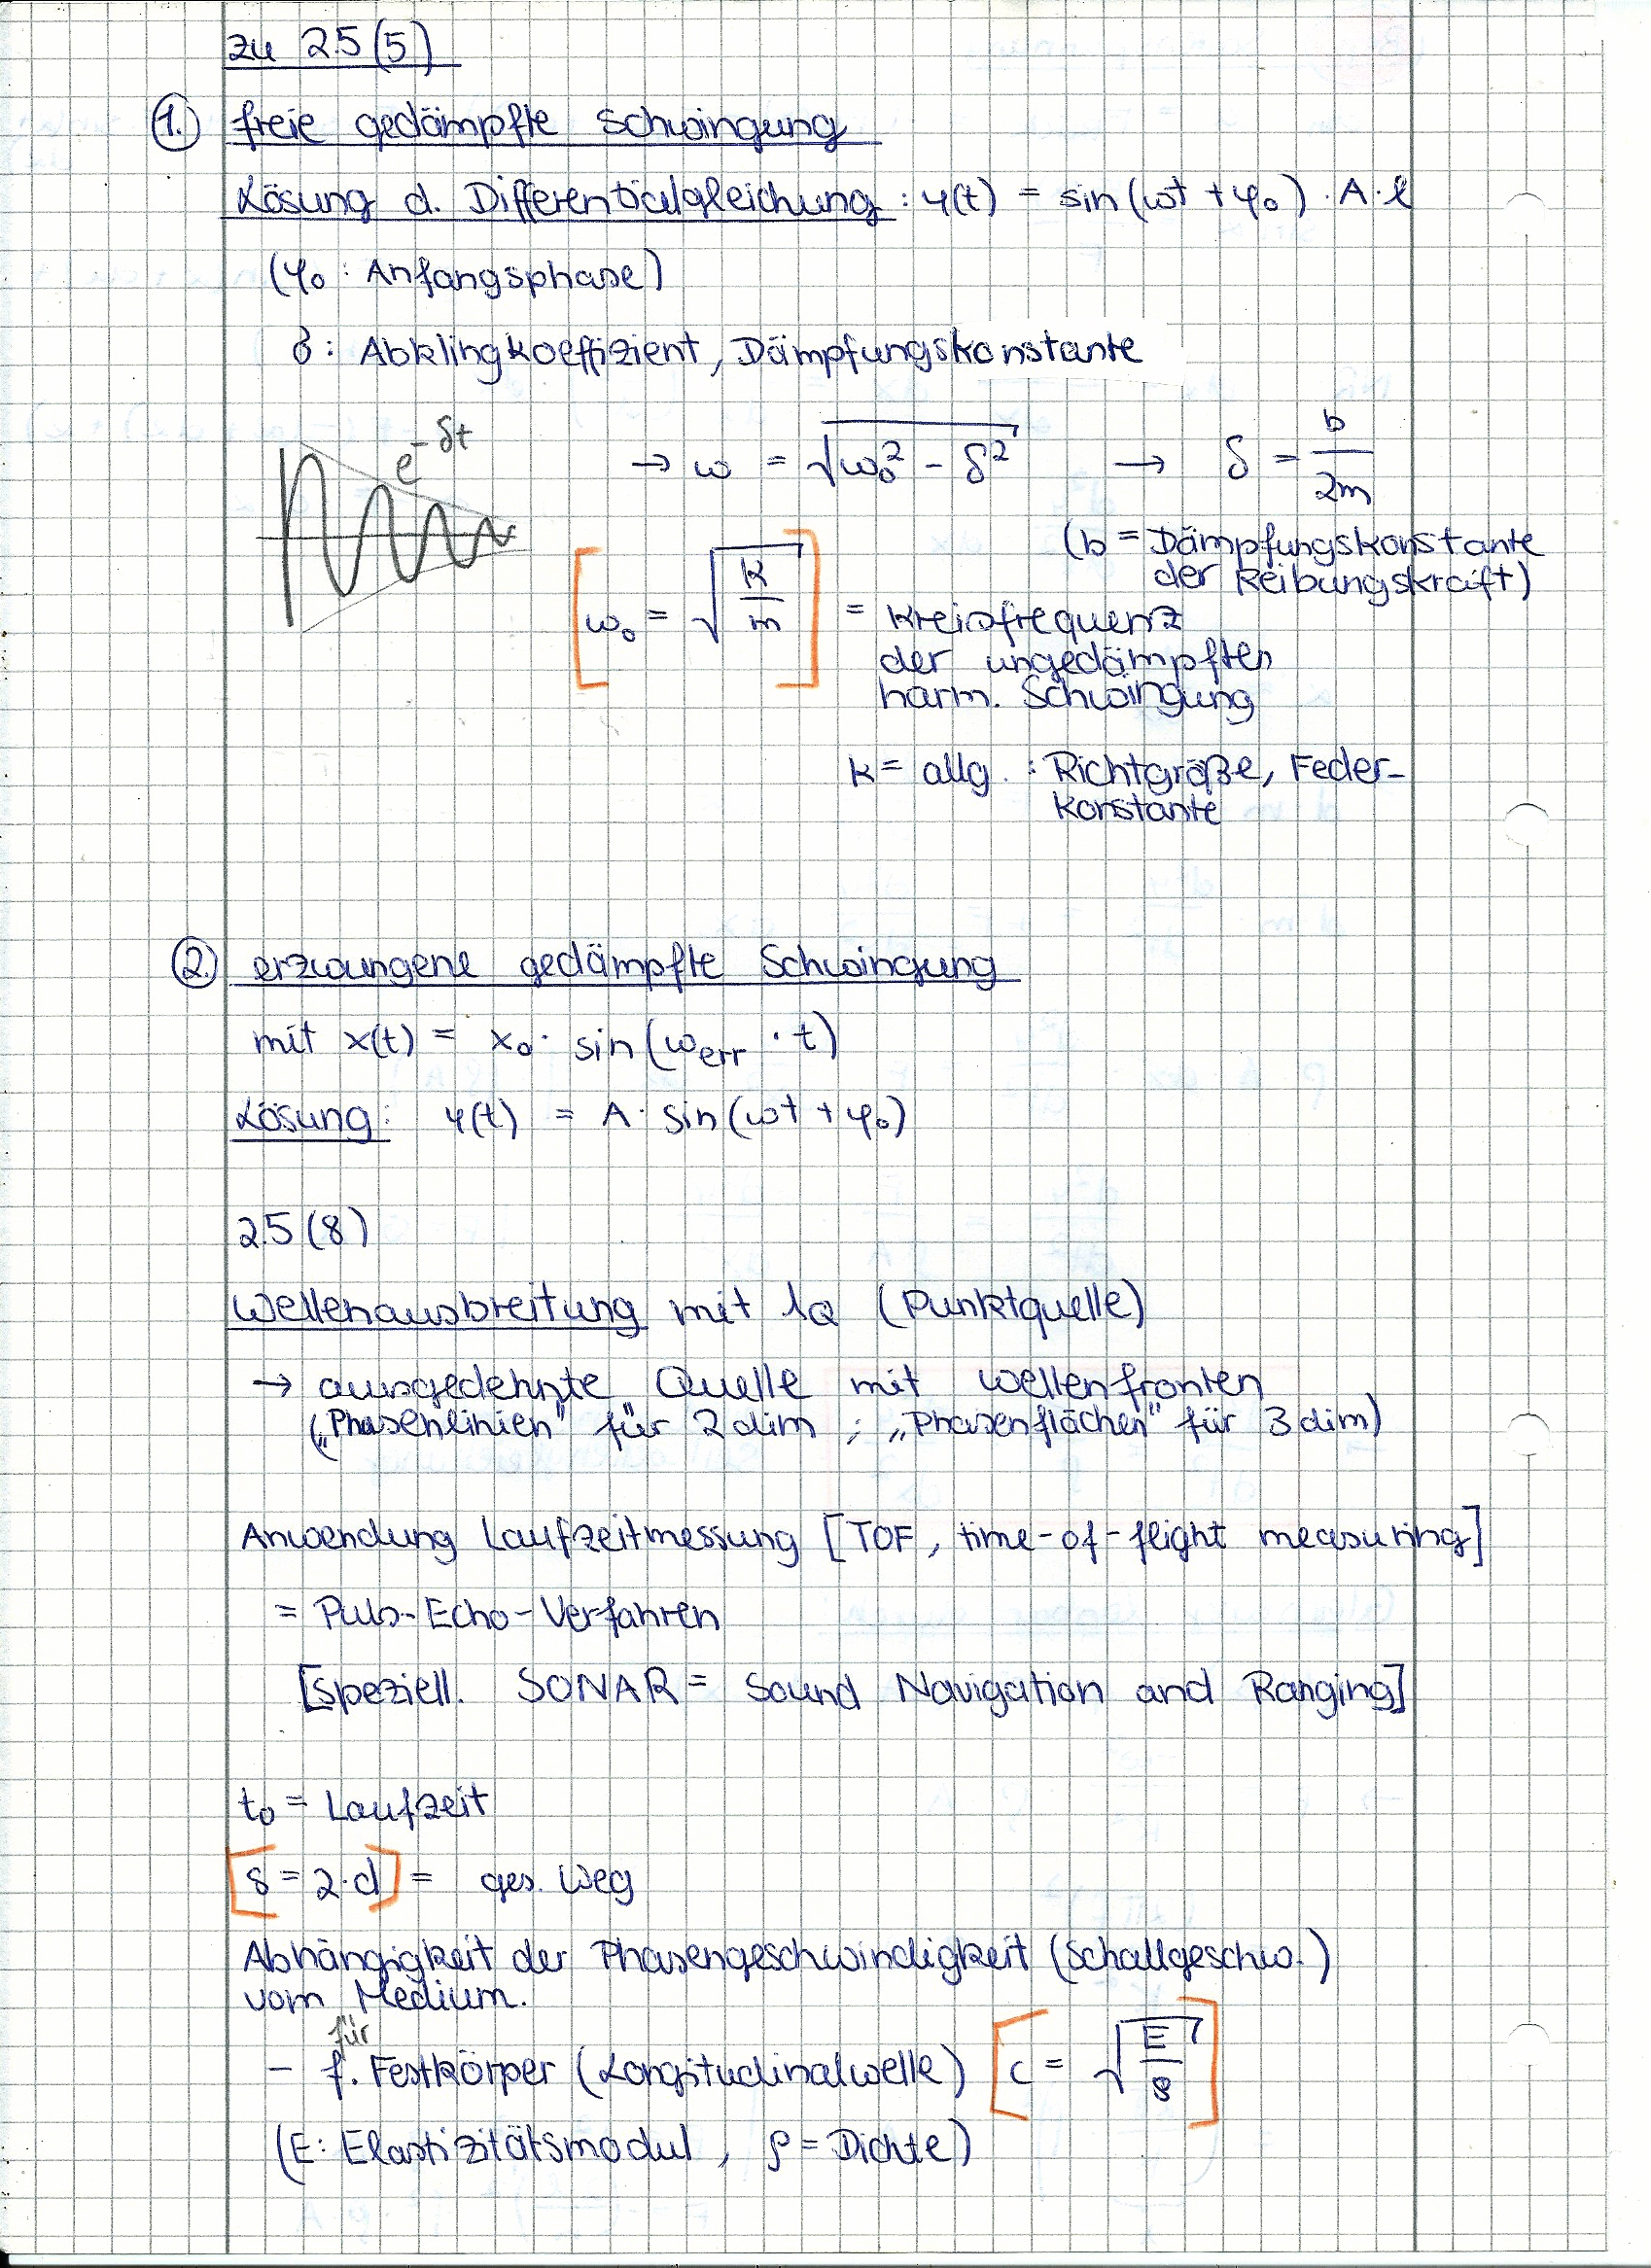 zu 2.5 (5)
1. freie gedämpfte Schwingung
Lösung d. Differentialgleichung : y(t) = sin(ωt + φ₀) · A · e
(φ₀ : Anfangsphase)
δ : Abklingkoeffizient, Dämpfungskonstante
e^-δt
→ ω = √(ω₀² - δ²) → δ = b/2m
(b = Dämpfungskonstante
der Reibungskraft)
[ω₀ = √(k/m)] = Kreisfrequenz
der ungedämpften
harm. Schwingung
k = allg. : Richtgröße, Feder-
konstante
2. erzwungene gedämpfte Schwingung
mit x(t) = x₀ · sin(ω_err · t)
Lösung: y(t) = A · sin(ωt + φ₀)
2.5 (8)
Wellenausbreitung mit 1Q (Punktquelle)
→ ausgedehnte Quelle mit Wellenfronten
(„Phasenlinien" für 2dim ; „Phasenflächen" für 3dim)
Anwendung Laufzeitmessung [TOF, time-of-flight measuring]
= Puls-Echo-Verfahren
[speziell. SONAR = Sound Navigation and Ranging]
t₀ = Laufzeit
[s = 2·d] = ges. Weg
Abhängigkeit der Phasengeschwindigkeit (Schallgeschw.)
vom Medium.
für
- f. Festkörper (Longitudinalwelle) [c = √(E/ρ)]
(E: Elastizitätsmodul, ρ = Dichte)